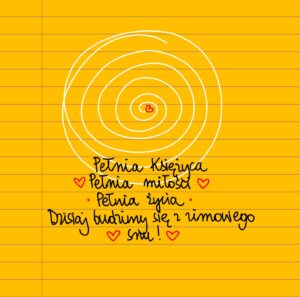 Pełnia Księżyca
Pełnia miłości
Pełnia życia
Dzisiaj budzimy się z zimowego
snu!